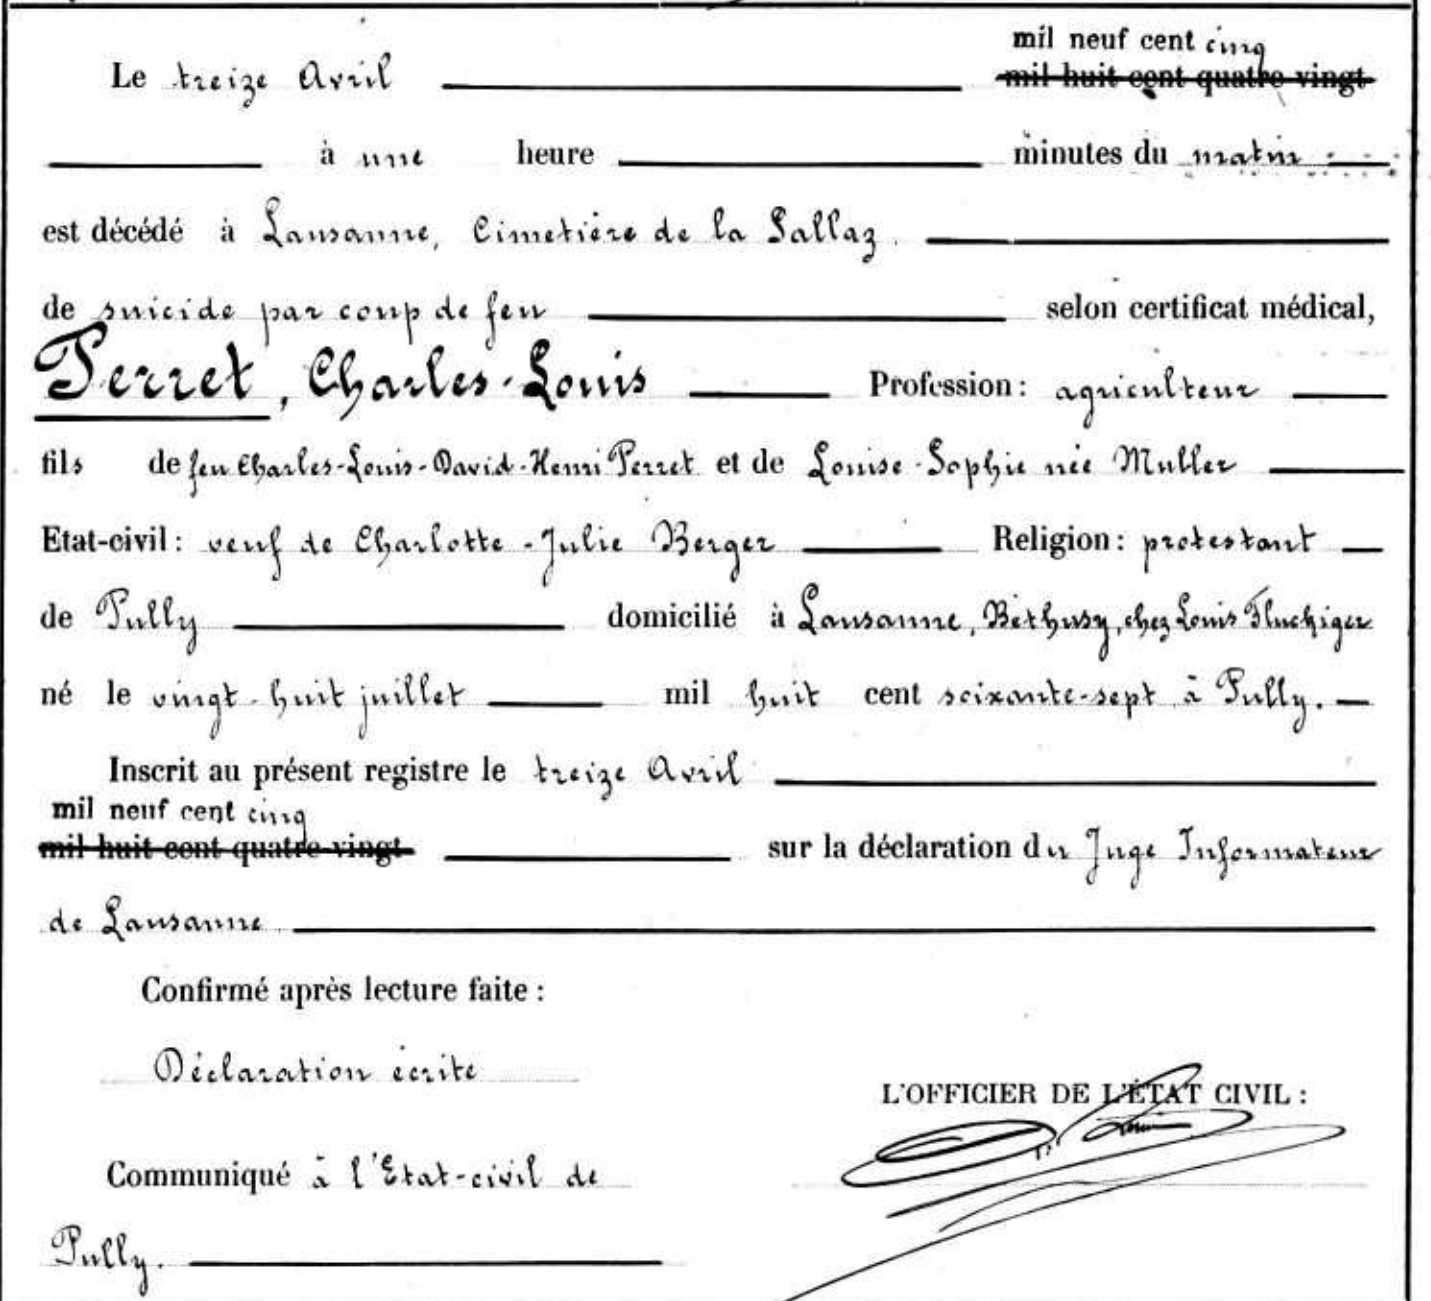 mil neuf cent cinq
Le treize Avril mil huit cent quatre-vingt
à une heure minutes du matin
est décédé à Lausanne, Cimetière de la Sallaz.
de suicide par coup de feu selon certificat médical,
Perret, Charles-Louis Profession: agriculteur
fils de feu Charles-Louis-David-Henri Perret et de Louise-Sophie née Muller
Etat-civil: veuf de Charlotte-Julie Berger Religion: protestant
de Pully domicilié à Lausanne, Béthusy, chez Louis Fluckiger
né le vingt-huit juillet mil huit cent soixante-sept à Pully.
Inscrit au présent registre le treize Avril
mil neuf cent cinq
mil huit cent quatre-vingt sur la déclaration du Juge Informateur
de Lausanne
Confirmé après lecture faite:
Déclaration écrite
L'OFFICIER DE L'ÉTAT CIVIL:
Communiqué à l'Etat-civil de
Pully.